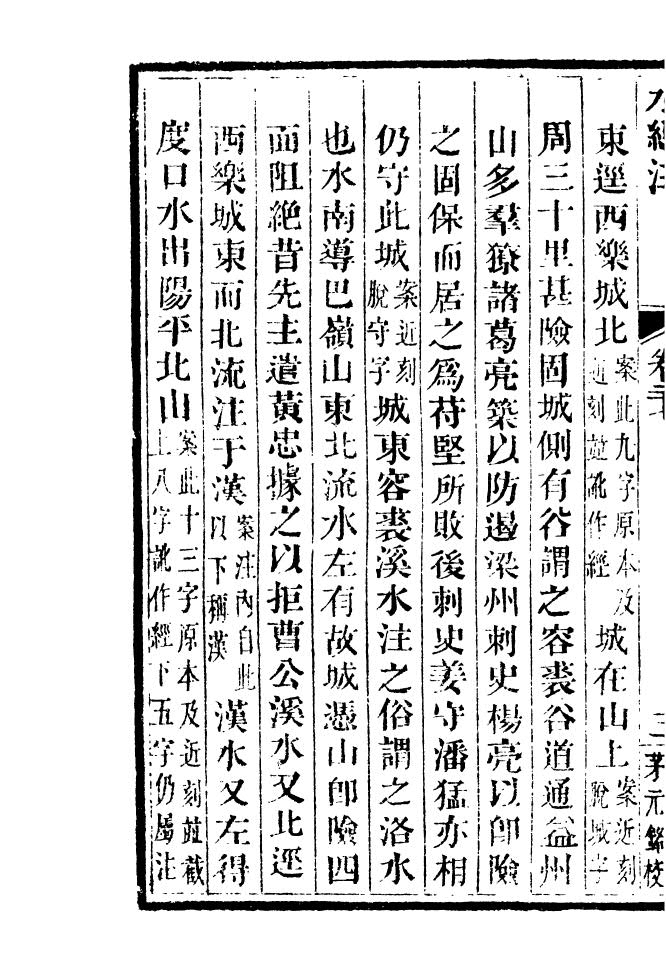 水經注 卷二十 二 茅元銘校
東逕西樂城北案此九字原本及近刻並訛作經城在山上案近刻脫城字
周三十里甚險固城側有谷謂之容裘谷道通益州
山多羣獠諸葛亮築以防遏梁州刺史楊亮以卽險
之固保而居之爲苻堅所敗後刺史姜守潘猛亦相
仍守此城案近刻脫守字城東容裘溪水注之俗謂之洛水
也水南導巴嶺山東北流水左有故城憑山卽險四
面阻絶昔先主遣黃忠據之以拒曹公溪水又北逕
西樂城東而北流注于漢案注內自此以下稱漢漢水又左得
度口水出陽平北山案此十三字原本及近刻並截上八字訛作經下五字仍屬注